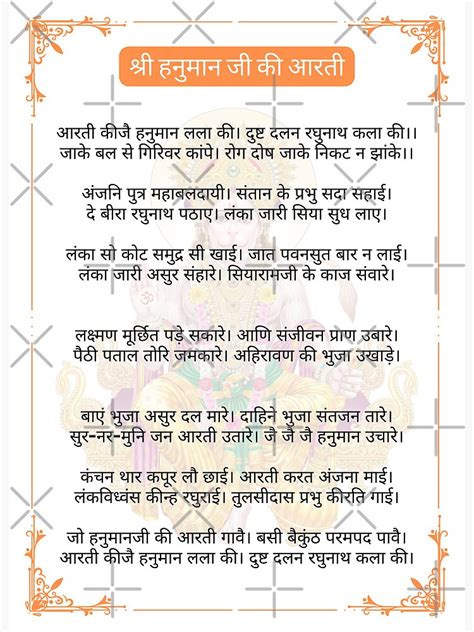 श्री हनुमान जी की आरती
आरती कीजै हनुमान लला की। दुष्ट दलन रघुनाथ कला की।।
जाके बल से गिरिवर कांपे। रोग दोष जाके निकट न झांके।।
अंजनि पुत्र महाबलदायी। संतान के प्रभु सदा सहाई।
दे बीरा रघुनाथ पठाए। लंका जारी सिया सुध लाए।
लंका सो कोट समुद्र सी खाई। जात पवनसुत बार न लाई।
लंका जारी असुर संहारे। सियारामजी के काज संवारे।
लक्ष्मण मूर्छित पड़े सकारे। आणि संजीवन प्राण उबारे।
पैठी पताल तोरि जमकारे। अहिरावण की भुजा उखाड़े।
बाएं भुजा असुर दल मारे। दाहिने भुजा संतजन तारे।
सुर-नर-मुनि जन आरती उतारे। जै जै जै हनुमान उचारे।
कंचन थार कपूर लौ छाई। आरती करत अंजना माई।
लंकविध्वंस कीन्ह रघुराई। तुलसीदास प्रभु कीरति गाई।
जो हनुमानजी की आरती गावै। बसी बैकुंठ परमपद पावै।
आरती कीजै हनुमान लला की। दुष्ट दलन रघुनाथ कला की।